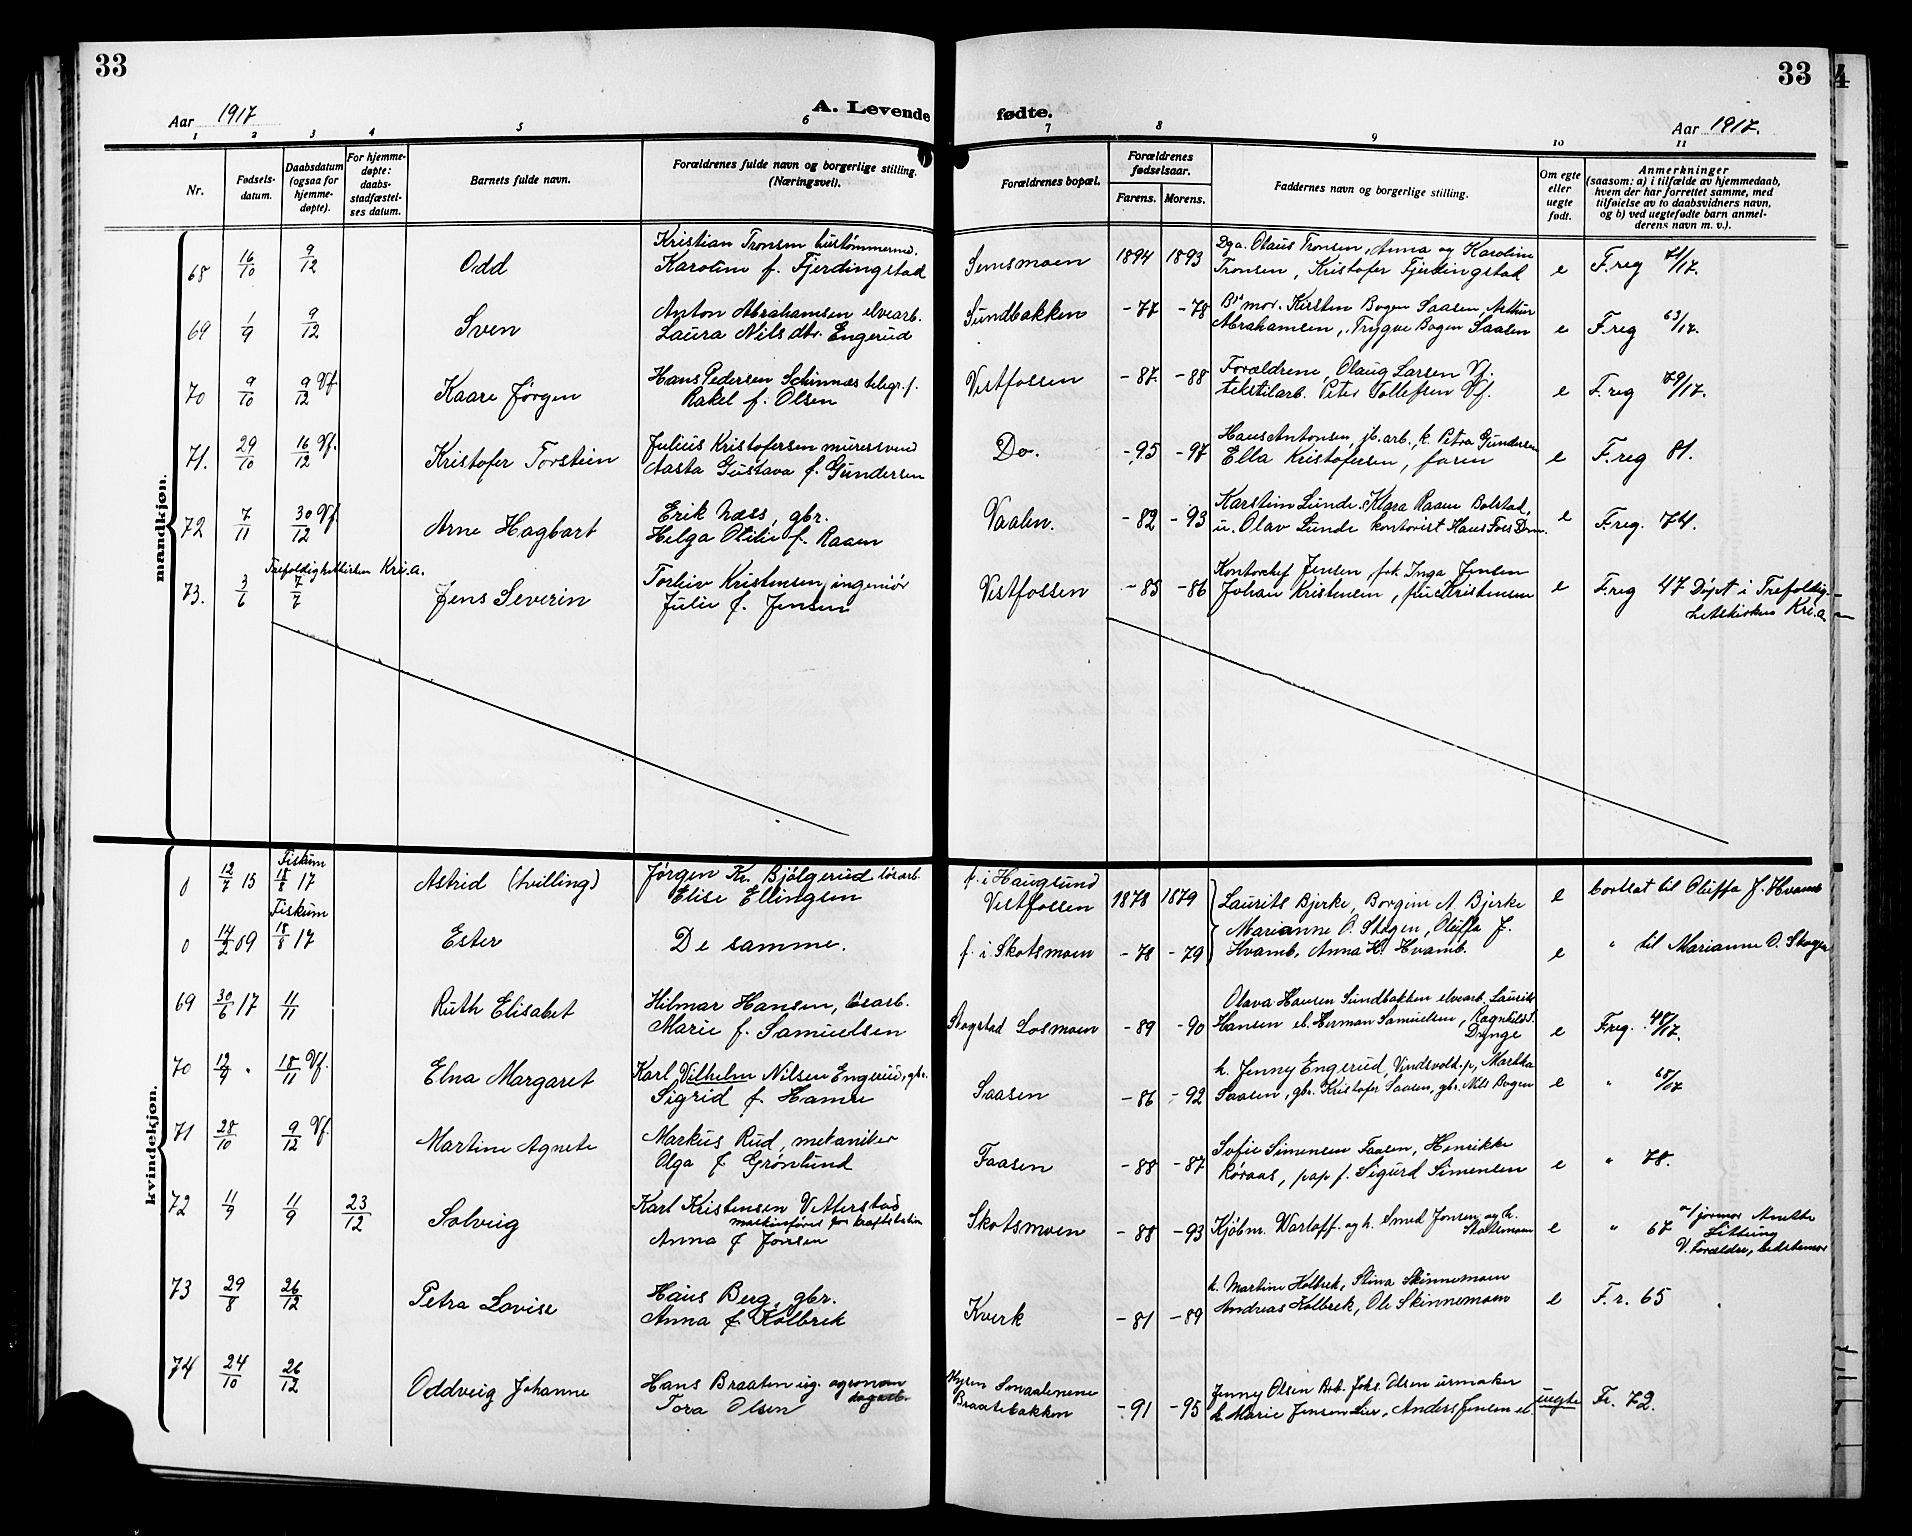 33
33
Aar 1917
A. Levende fødte.
Aar 1917.
1 2 3 4 5 6 7 8 9 10 11
Nr.
Fødsels-
datum.
Daabsdatum
(ogsaa for
hjemme-
døpte).
For hjemme-
døpte:
daabs-
stadfæstel-
ses datum.
Barnets fulde navn.
Forældrenes fulde navn og borgerlige stilling.
(Næringsvei).
Forældrenes bopæl.
Forældrenes
fødselsaar.
Farens. Morens.
Faddernes navn og borgerlige stilling.
Om egte
eller
uegte
født.
Anmerkninger
(saasom: a) i tilfælde av hjemmedaab,
hvem der har forrettet samme, med
tilføielse av to daabsvidners navn,
og b) ved uegtefødte barn anmel-
derens navn m. v.).
mandkjøn.
68 16/10 9/12 Odd
Kristian Tronsen hustømmerm.
Karoline f. Fjerdingstad
Semsmoen 1894 1893
Dga. Olaus Tronsen, Anna og Karoline
Tronsen, Kristofer Fjerdingstad
e F. reg 71/17.
69 1/9 9/12 Sven
Anton Abrahamsen elvearb.
Laura Nilsdtr. Engerud
Sundbakken -77 -78
mor. Kirsten Bogen Saasen, Arthur
Abrahamsen, Trygve Bogen Saasen
e F. reg 63/17.
70 9/10 9/12 Vf. Kaare Jørgen
Hans Pedersen Schinnæs telegr. f.
Rakel f. Olsen
Vestfossen -87 -88
Forældrene, Olaug Larsen Vf.
tekstilarb. Peter Tollefsen Vf.
e F. reg 79/17.
71. 29/10 16/12 Vf. Kristofer Torstein
Julius Kristofersen murersvend
Aasta Gustava f. Gundersen
Do. -95 -97
Hans Antonsen, jb. arb., k. Petra Gundersen
Ella Kristofersen, faren
e F. reg 81.
72 7/11 30/12 Vf. Arne Hagbart
Erik Næss, gbr.
Helga Otilie f. Raaen
Vaalen. -82 -93
Karstein Lunde, Klara Raaen Bolstad,
u. Olav Lunde kontorist Hans Foss Drm.
e F. reg. 74.
Trefoldighetskirken Kr.i.a.
73. 3/6 7/7 Jens Severin
Torleiv Kristensen, ingeniør
Julie f. Jensen
Vestfossen -85 -86
Kontorchef Jensen, frk. Inga Jensen
Johan Kristensen, fru Kristensen
e F. reg 47 Døpt i Trefoldig-
hetskirken Kr.i.a.
kvindekjøn.
0 12/7 15 Fiskum 18/8 17 Astrid (tvilling)
Jørgen Kr. Bjølgerud løsarb.
Elise Ellingsen
f. i Hauglund
Vestfossen 1878 1879
Laurits Bjerke, Borgine A. Bjerke
e bortsat til Oliffa J. Hvamb
0 14/2 09 Fiskum 18/8 17 Ester
De samme.
f. i Skotsmoen -78 -79
Marianne O. Skogen, Oliffa J.
Hvamb, Anna K. Hvamb.
e " til Marianne O. Skogen
69 30/6 17 11/11 Ruth Elisabet
Hilmar Hansen, løsarb.
Marie f. Samuelsen
Skogstad Losmoen -89 -90
Olava Hansen Sundbakken elvearb. Laurits
Hansen el. Herman Samuelsen, Ragnhild S.
Dynge
e F. reg. 48/17.
70 12/9 " 18/11 Vf. Elna Margaret
Karl Vilhelm Nilsen Engerud, gbr.
Sigrid f. Hamre
Saasen -86 -92
k. Jenny Engerud, Vindsvold. p, Martha
Saasen, gbr. Kristofer Saasen, gbr. Nils Bogen
e " 68/17
71 28/10 9/12 Vf. Martine Agnete
Markus Rud, mekaniker
Olga f Grønlund
Faasen -88 -87
Sofie Simensen Faasen, Henrikke
Røraas, pap f. Sigurd Simensen
e " 78.
72 11/9 11/9 23/12 Solveig
Karl Kristensen Vetterstad
maskinfører for kraftstation
Anna f Jonsen
Skotsmoen -88 -93
Kjøbm. Warloff. og h. Smed Jonsen og h.
Skotsmoen
e " 67 a/ jormor Anette
V. Forældre, bedstemor
73 29/8 26/12 Petra Lovise
Hans Berg, gbr.
Anna f Kolbrek
Kverk -81 -89
k. Martine Kolbrek, Stina Skinnemoen
Andreas Kolbrek, Ole Skinnemoen
e F. r. 65
74 24/10 26/12 Oddveig Johanne
Hans Braaten ug. agronom
Tora Olsen
Mysen Smaalenene
Braatebakken -91 -95
Jenny Olsen Brb. Johs. Olsen urmaker
k. Marie Jensen Lier, Anders Jensen el.
uegte Fr. 72.